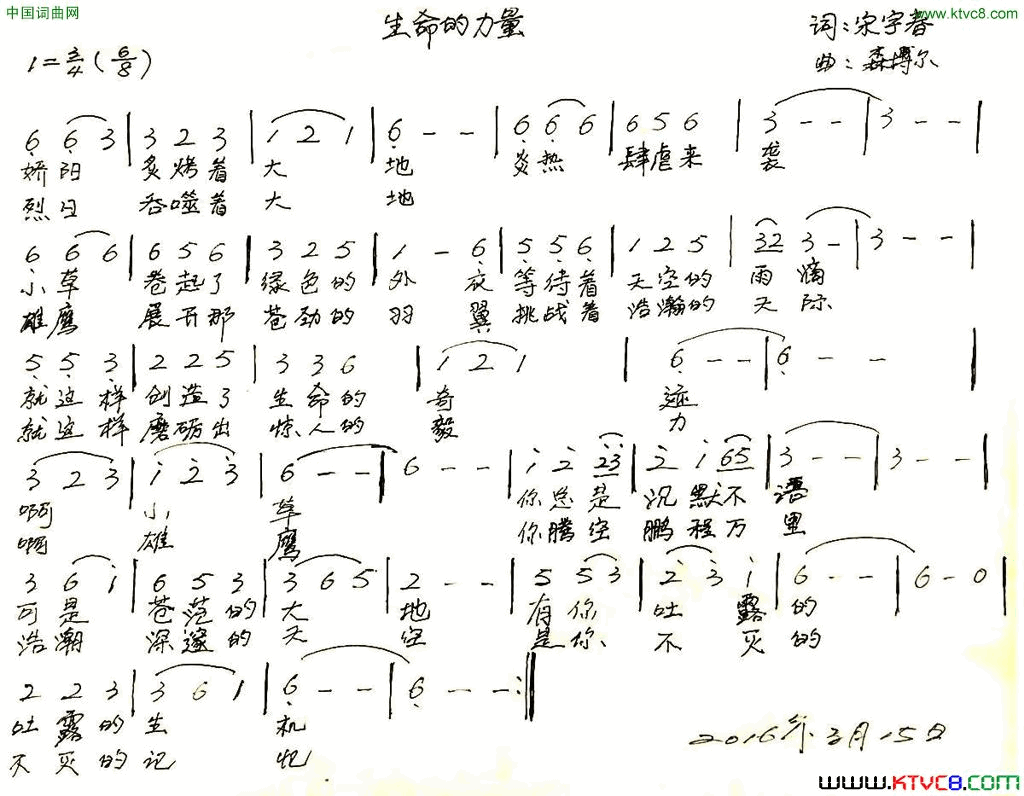 中国词曲网
www.ktvc8.com
生命的力量
词:宋宇春
1=3/4(6/8)
曲:森博尔
6 6 3 | 3 2 3 | 1 2 1 | 6 - - | 6 6 6 | 6 5 6 | 3 - - | 3 - - |
娇阳 炙烤着 大 地 炎热 肆虐来 袭
烈日 吞噬着 大 地
6 6 6 | 6 5 6 | 3 2 5 | 1 - 6 | 5 5 6 | 1 2 5 | 32 3 - | 3 - - |
小草 卷起了 绿色的 外 衣 等待着 天空的 雨 滴
雄鹰 展开那 苍劲的 羽 翼 挑战着 浩瀚的 天 际
5 5 3 | 2 2 5 | 3 3 6 | 1 2 1 | 6 - - | 6 - - |
就这样 创造了 生命的 奇 迹
就这样 磨砺出 惊人的 毅 力
3 2 3 | i 2 3 | 6 - - | 6 - - | i 2 23 | 2 i 65 | 3 - - | 3 - - |
啊 小 草 你总是 沉默不 语
啊 雄 鹰 你腾空 鹏程万 里
3 6 i | 6 5 3 | 3 6 5 | 2 - - | 5 5 3 | 2 3 i | 6 - - | 6 - 0 |
可是 苍茫的 大 地 有你 吐 露 的
浩瀚 深邃的 天 空 是你 不 灭 的
2 2 3 | 3 6 1 | 6 - - | 6 - - :||
吐露的 生 机
不灭的 记 忆
2016年3月15日
www.KTVC8.com